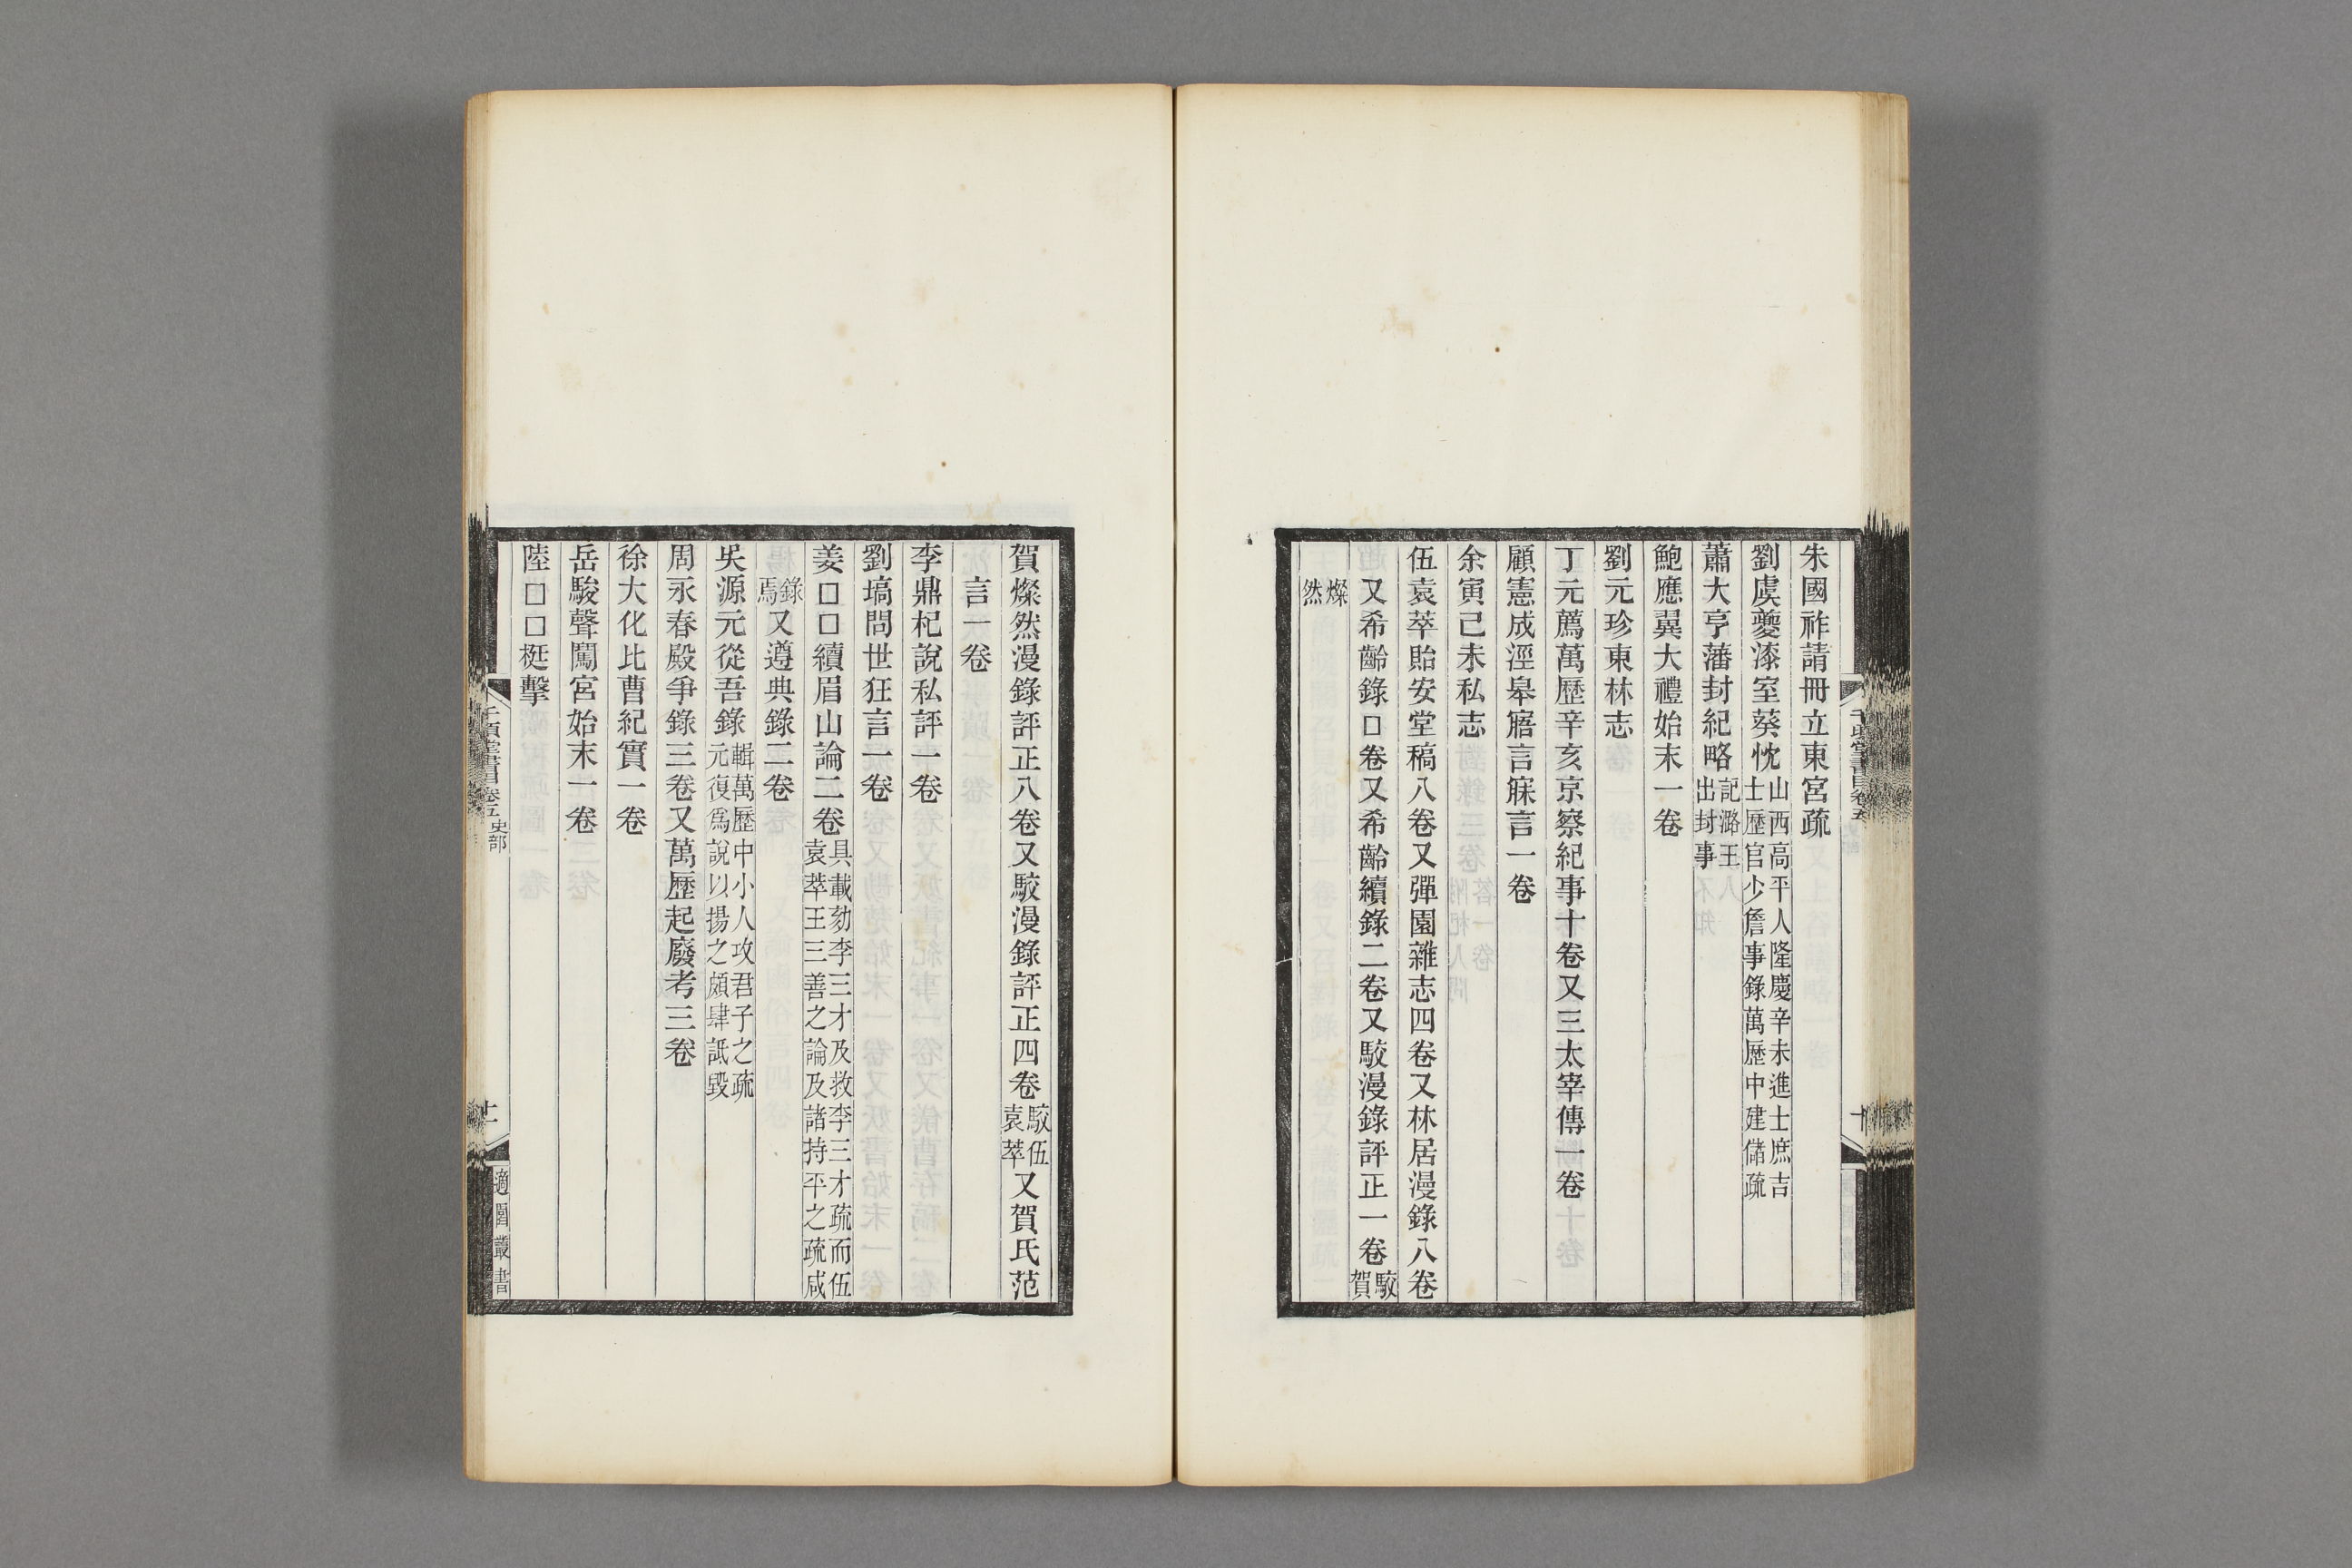 朱國祚請冊立東宮疏
劉虞夔漆室葵忱山西高平人隆慶辛未進士庶吉士歷官少詹事錄萬歷中建儲疏
蕭大亨藩封紀略記潞王出封事
鮑應翼大禮始末一卷
劉元珍東林志
丁元薦萬歷辛亥京察紀事十卷又三太宰傳一卷
顧憲成涇皋寤言寐言一卷
余寅己未私志
伍袁萃貽安堂稿八卷又彈園雜志四卷又林居漫錄八卷
又希齡錄□卷又希齡續錄二卷又駮漫錄評正一卷駮賀
燦然
賀燦然漫錄評正八卷又駮漫錄評正四卷駮伍袁萃又賀氏范
言一卷
李鼎杞說私評一卷
劉塙問世狂言一卷
姜□□續眉山論二卷具載劾李三才及救李三才疏而伍袁萃王三善之論及諸持平之疏咸
錄焉又遵典錄二卷
吳源元從吾錄輯萬歷中小人攻君子之疏元復為說以揚之頗肆詆毀
周永春殿爭錄三卷又萬歷起廢考三卷
徐大化比曹紀實一卷
岳駿聲闖宮始末一卷
陸□□梃擊
千頃堂書目卷五 史部
十一
適園叢書